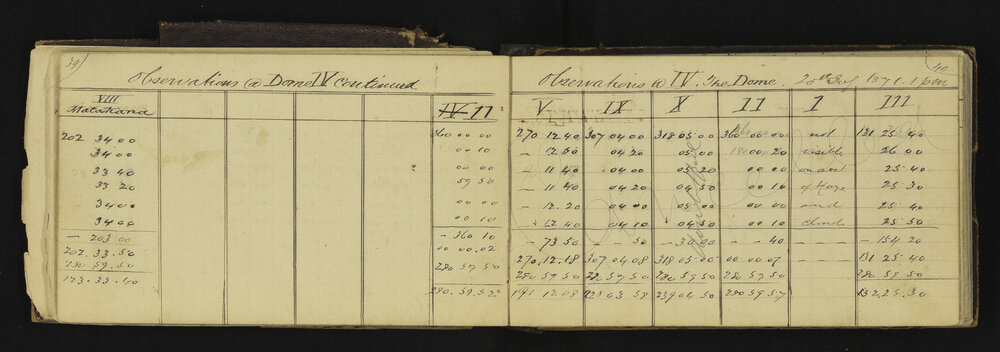 39
Observations @ Dome IV continued
VIII
Matakana IV II
202 34 00 360 00 00
34 00 00 10
33 40
33 20 59 50
34 00 00 00
34 00 00 10
— 203 00 — 360 10
202. 33. 50 00 00. 02
280 59. 50 280 59 50
123. 33. 40
280. 59. 52
40
Observations @ IV. The Dome. 1 pm
V IX X II I III
270. 12 40 307 04 00 318 05 00 360 00 00 not 131 25 40
— 12 30 04 20 05 00 180 00 20 visible 26 00
— 11 40 04 00 05 20 00 00 25 40
— 11 40 04 20 04 50 00 10 of Haze 25 30
— 12. 20 04 00 05 00 00 00 and 25 40
12 40 04 10 04 50 00 10 cloud 25 50
— 73 50 — — 50 — 30 00 — — 40 — — 154 20
270. 12. 18 307 04 08 318 05 00 00 00 07 — 131 25 40
280 59 50 280 59 50 280 59 50 280 59 50
191 12 08 239 04 50 280 59 57 25. 30